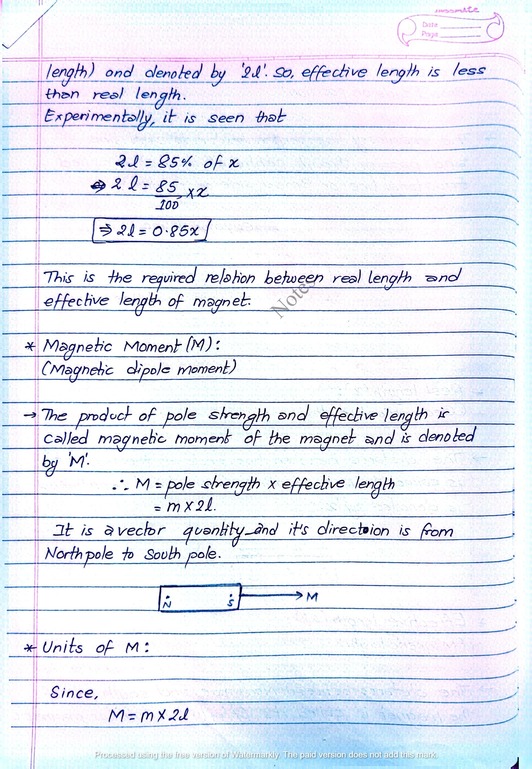 classmate
Date
Page
length) and denoted by '2l'. So, effective length is less
than real length.
Experimentally, it is seen that
2l = 85% of x
⇒ 2l = 85/100 × x
⇒ 2l = 0.85x
This is the required relation between real length and
effective length of magnet.
Notes
* Magnetic Moment (M):
(Magnetic dipole moment)
→ The product of pole strength and effective length is
called magnetic moment of the magnet and is denoted
by 'M'.
∴ M = pole strength × effective length
= m × 2l.
It is a vector quantity and it's direction is from
North pole to South pole.
N S → M
* Units of M:
Since,
M = m × 2l
Processed using the free version of Watermarkly. The paid version does not add this mark.